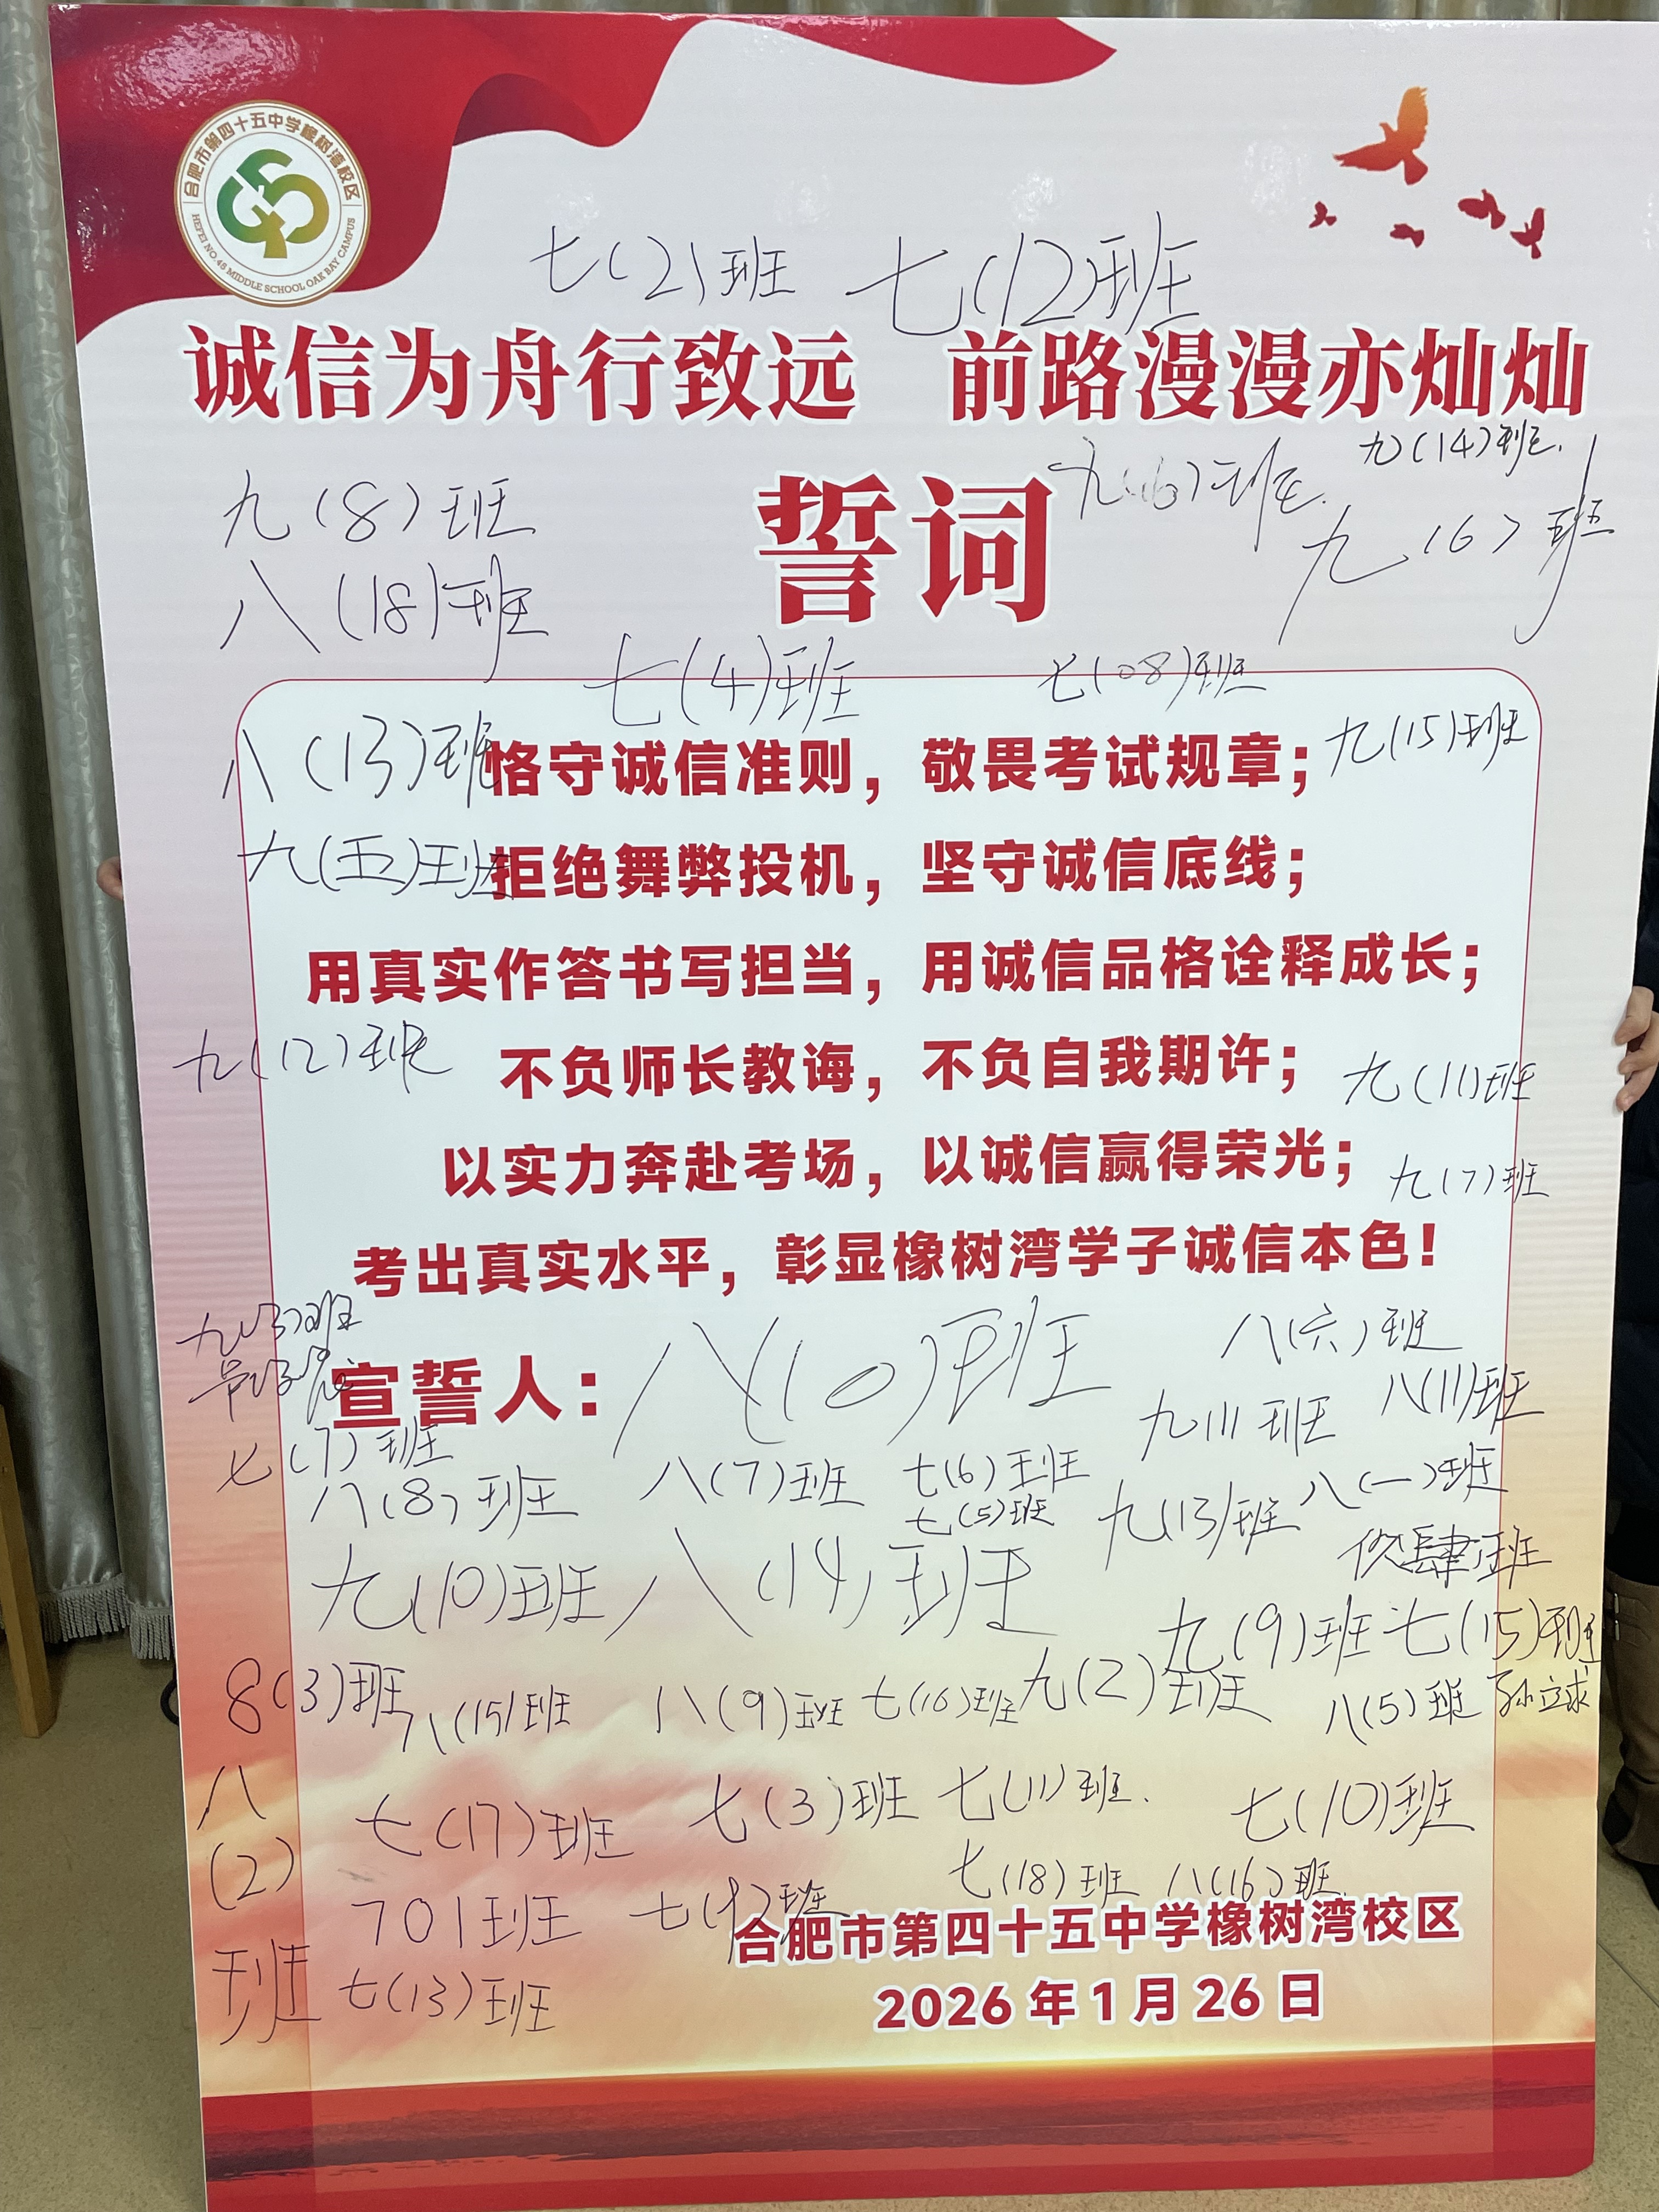 合肥市第四十五中学橡树湾校区
HEFEI NO.45 MIDDLE SCHOOL OAK BAY CAMPUS
七(2)班 七(12)班
诚信为舟行致远 前路漫漫亦灿灿
九(14)班.
九(8)班
九(6)班
誓词
八(18)班
七(4)班 七(08)班
八(13)班
九(15)班
恪守诚信准则，敬畏考试规章；
九(五)班
拒绝舞弊投机，坚守诚信底线；
用真实作答书写担当，用诚信品格诠释成长；
九(12)班
不负师长教诲，不负自我期许；
九(11)班
以实力奔赴考场，以诚信赢得荣光；
九(7)班
考出真实水平，彰显橡树湾学子诚信本色！
九(3)班
宣誓人：
八(10)班
八(六)班
八(11)班
九(1)班
七(7)班
八(8)班 八(7)班 七(6)班
七(5)班
九(13)班 八(一)班
九(10)班 八(14)班
九(9)班 七(15)班
8(3)班 八(15)班 八(9)班 七(16)班 九(2)班 八(5)班 孙立球
八(2)班
七(17)班 七(3)班 七(11)班. 七(10)班
七(18)班 八(16)班
701班
合肥市第四十五中学橡树湾校区
七(13)班
2026年1月26日